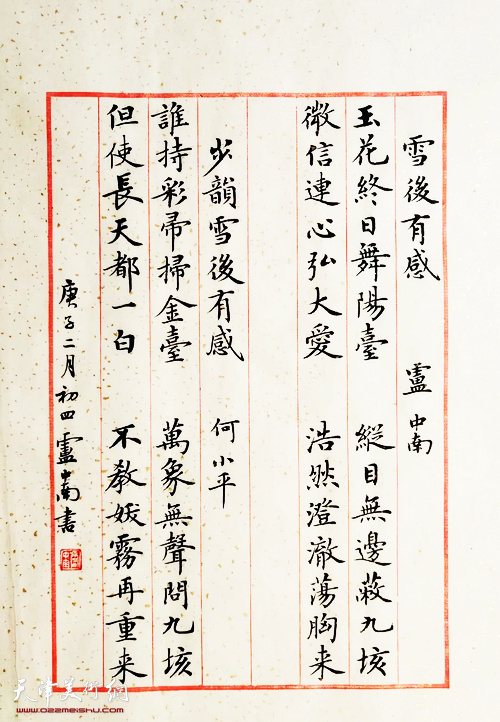 雪後有感 盧中南
玉花終日舞陽臺 縱目無邊蔽九垓
微信連心弘大愛 浩然澄澈蕩胸来
步韻雪後有感 何小平
誰持彩帚掃金臺 萬象無聲問九垓
但使長天都一白 不教妖霧再重来
庚子二月初四盧中南書
天津美術網
www.022meishu.com